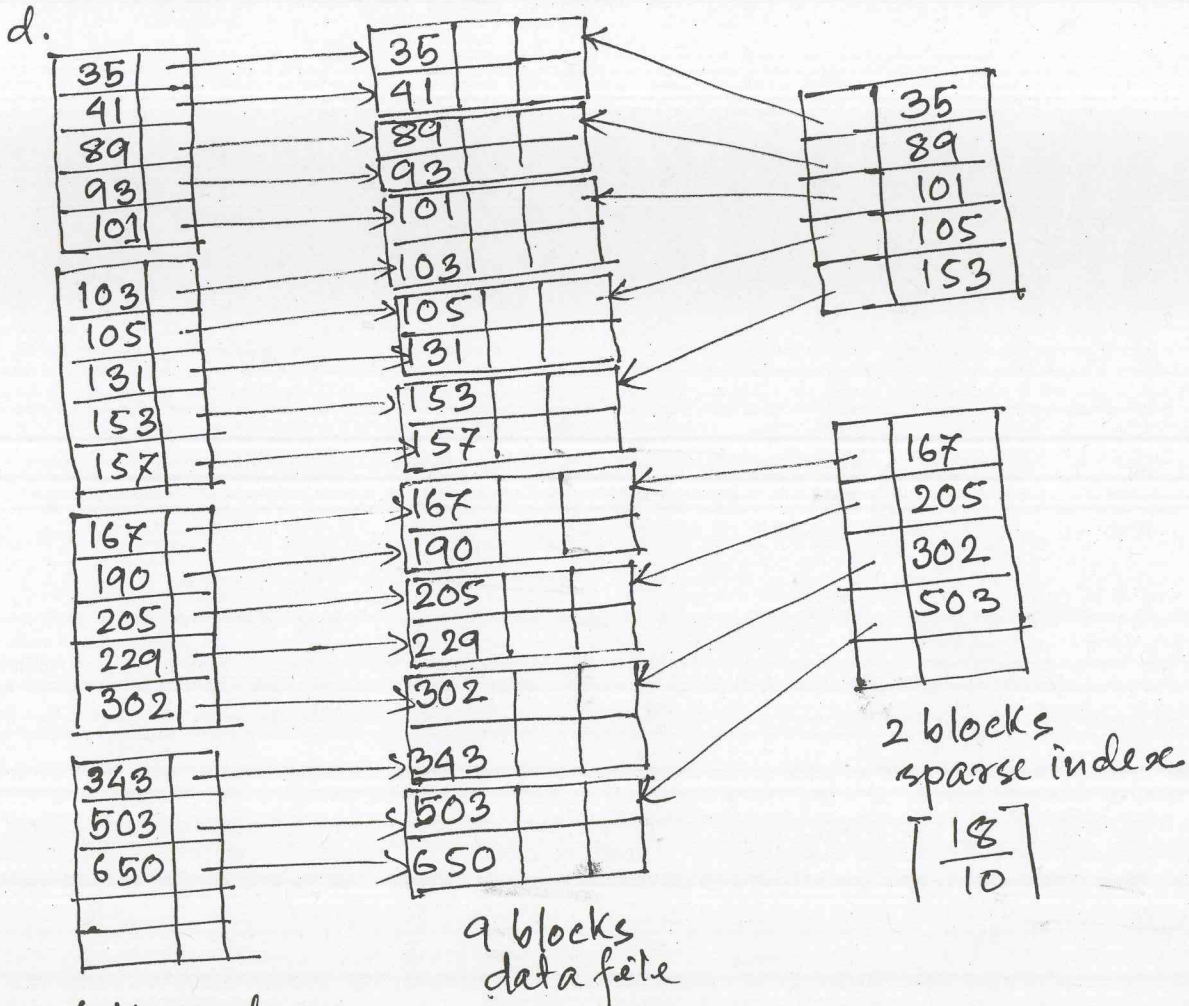 d.
35
41
89
93
101
103
105
131
153
157
167
190
205
229
302
343
503
650
35
41
89
93
101
103
105
131
153
157
167
190
205
229
302
343
503
650
9 blocks
data file
35
89
101
105
153
167
205
302
503
2 blocks
sparse index
⌈18/10⌉